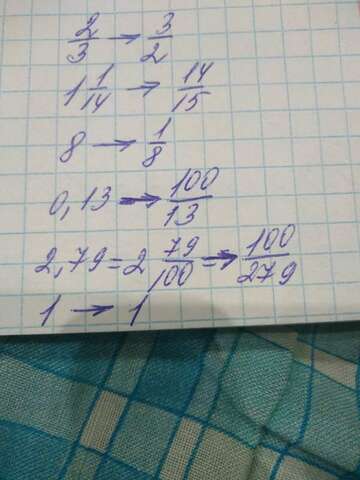 2/3 → 3/2
1 1/14 → 14/15
8 → 1/8
0,13 → 100/13
2,79 = 2 79/100 → 100/279
1 → 1